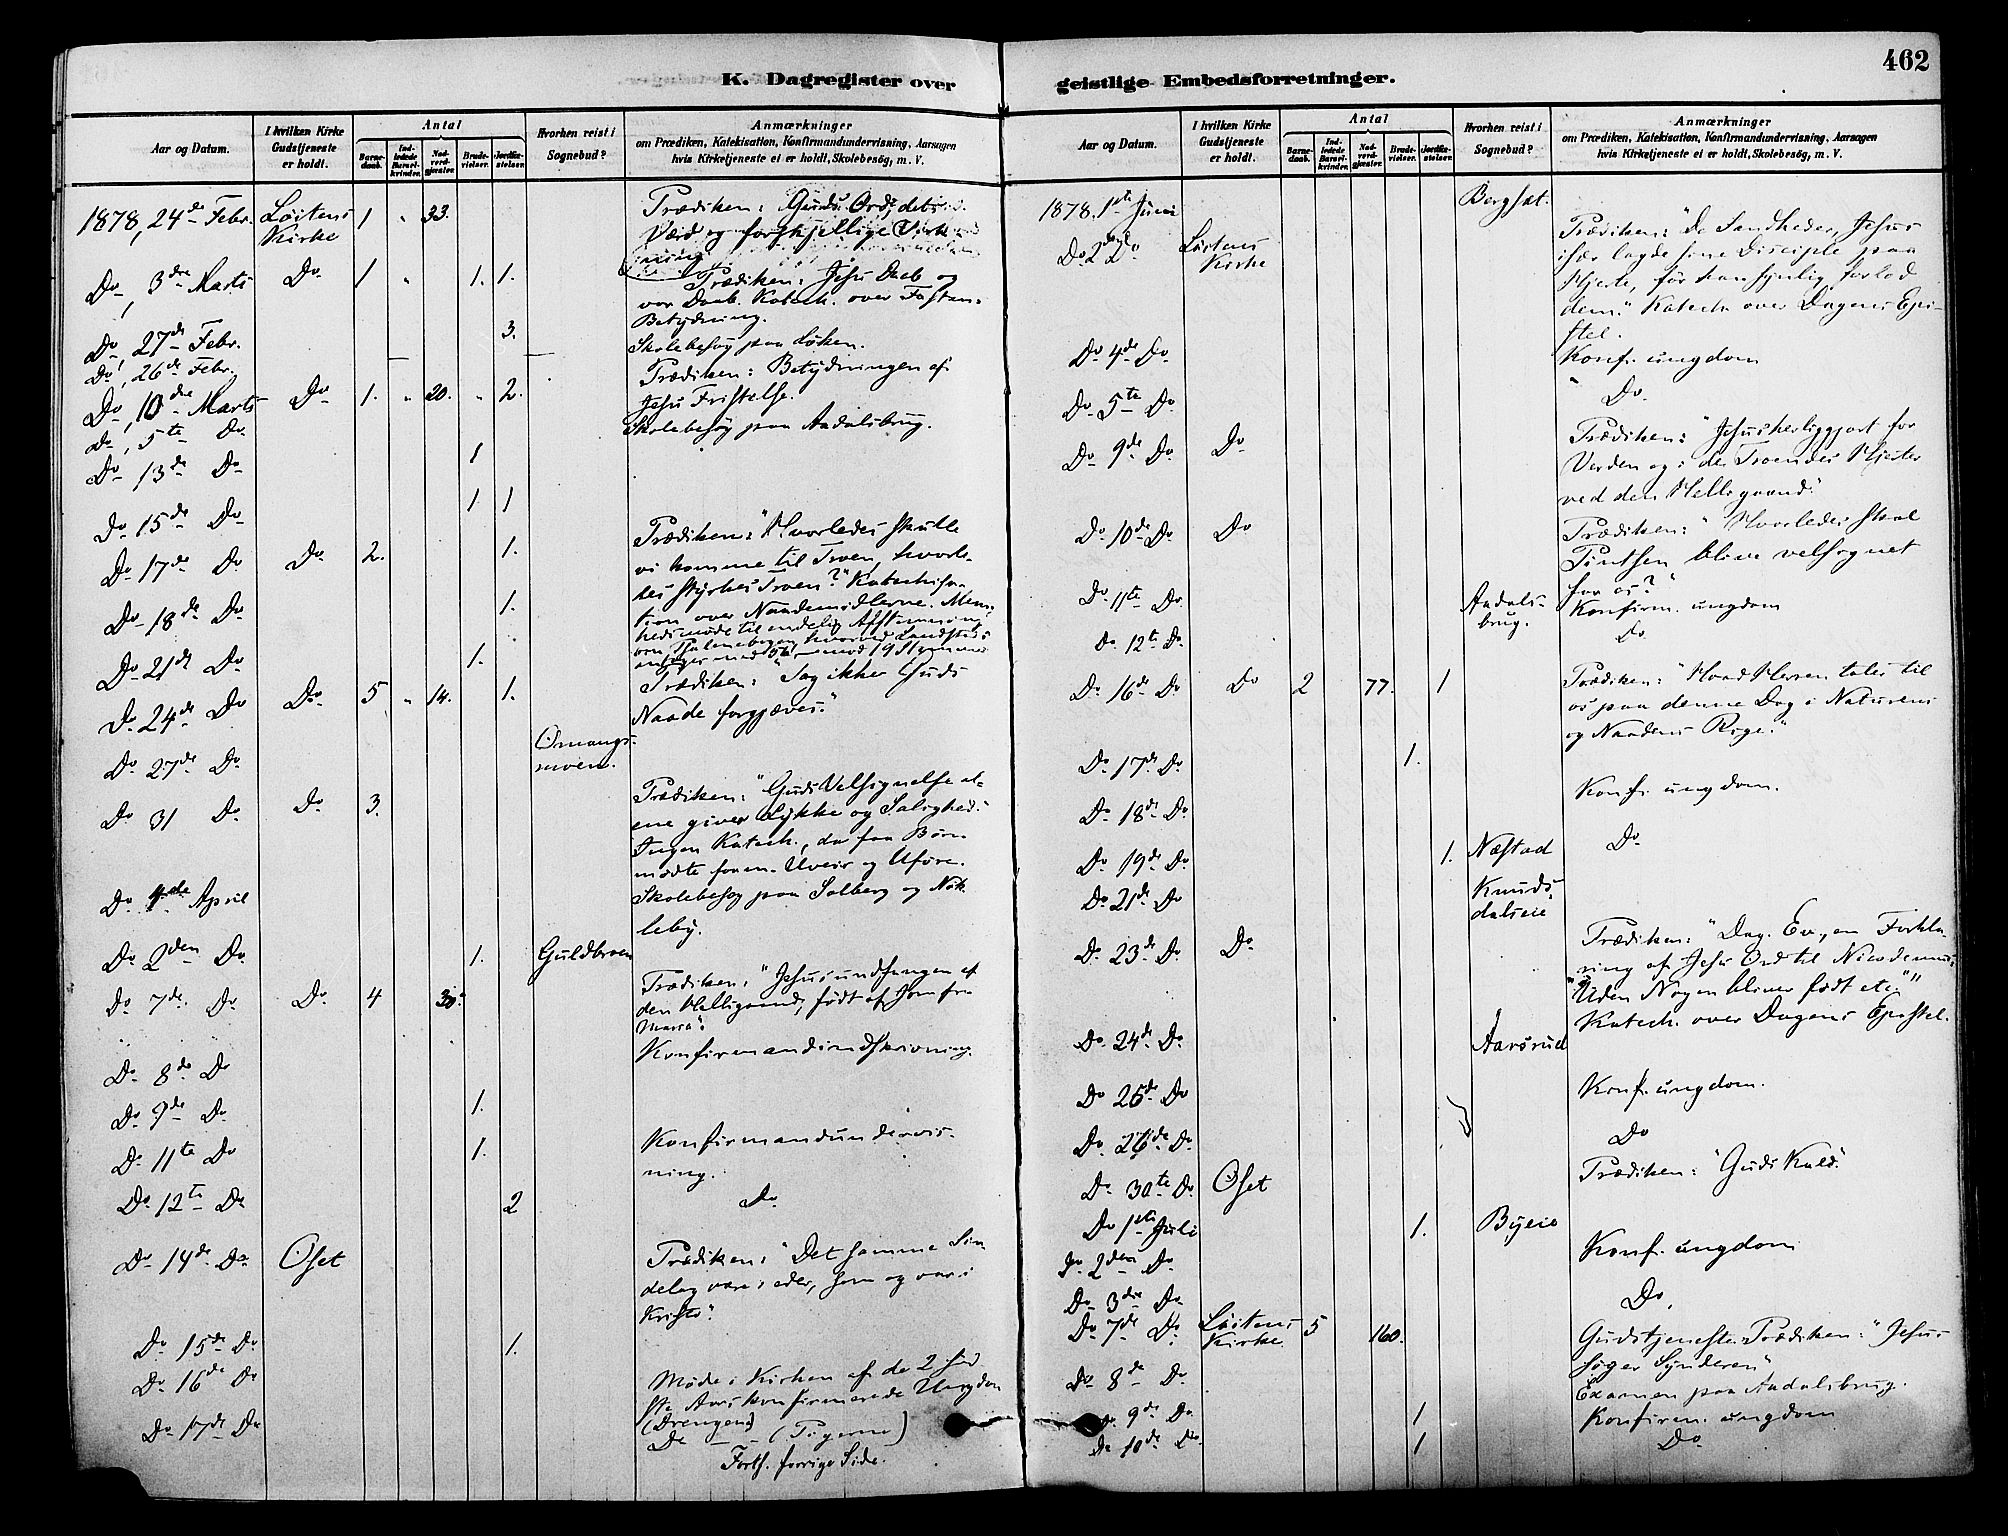 462
K. Dagregister over
geistlige Embedsforretninger.
Aar og Datum.
I hvilken Kirke Gudstjeneste er holdt.
Antal
Barnedaab.
Indledede Barselkvinder.
Nadverdgjæster.
Brudevielser.
Jordfæstelser.
Hvorhen reist i Sognebud?
Anmærkninger
om Prædiken, Katekisation, Konfirmandundervisning, Aarsagen
hvis Kirketjeneste ei er holdt, Skolebesøg, m. V.
1878, 24de Febr. Løitens Kirke 1 " 33. Prædiken: Guds Ord, dets
Værd og forskjellige Virk
ning
Do, 3dre Marts Do 1 " 1. 1. Prædiken: Jesu Daab og
vor Daab. Katech. over Fastens
Betydning.
Do, 27de Febr. 3.
Do, 26de Febr. — — Skolebesøg paa Løken.
Do, 10de Marts Do 1. " 20. " 2. Prædiken: Betydningen af
Jesu Fristelse.
Do, 5te Do Skolebesøg paa Aadalsbrug.
Do 13de Do 1
Do 15de Do 1. 1
Do 17de Do Do 2. 1. Prædiken: "Hvorledes skulle
vi komme til Troen, hvorle-
des styrkes Troen?" Katechisa-
tion over Naademidlerne. Menig-
hedsmøde til endelig Afstemning
om Psalmebogen, hvorved Landstads
antoges med 56 mod 19 Stemmer
Do 18de Do 1.
Do 21de Do 1.
Do 24de Do Do 5 " 14. 1. Prædiken: "Tag ikke Guds
Naade forgjæves."
Do 27de Do Ømangs-
Do 31 Do Do 3. Prædiken: "Guds Velsignelse al-
ene giver Lykke og Salighed."
Ingen Katech., da faa Børn
mødte form. Uveir og Uføre.
Do 1de April Skolebesøg paa Solberg og Nøk-
leby.
Do 2den Do 1. Guldbroen
Do 7de Do Do 4 30. Prædiken: "Jesus undfangen af
den Helligaand, født af Jomfru
Maria".
Do 8de Do Konfirmandindskrivning.
Do 9de Do 1.
Do 11te Do 1. Konfirmandundervis-
ning.
Do 12te Do 2 Do
Do 14de Do Oset Prædiken: "Det samme Sin
delag være i eder, som og var i
Kristo".
Do 15de Do 1.
Do 16de Do Møde i Kirken af de 2 sid
ste Aars konfirmerede Ungdom
(Drengene)
Do 17de Do Do — — (Pigerne)
Forts. forrige Side.
Aar og Datum.
I hvilken Kirke Gudstjeneste er holdt.
Antal
Barnedaab.
Indledede Barselkvinder.
Nadverdgjæster.
Brudevielser.
Jordfæstelser.
Hvorhen reist i Sognebud?
Anmærkninger
om Prædiken, Katekisation, Konfirmandundervisning, Aarsagen
hvis Kirketjeneste ei er holdt, Skolebesøg, m. V.
1878. 1ste Juni Bergsæt.
Do 2den Do Løitens Kirke Prædiken: "De Sandheder, Jesus
især lagde sine Disciple paa
Hjerte, før han synlig forlod
dem." Katech. over Dagens Epi-
stel.
Do 4de Do Konf. ungdom
Do 5te Do " Do.
Do 9de Do Do Prædiken: "Jesus herliggjort for
Verden og i de Troendes Hjerter
ved den Helligaand."
Do 10de Do Do Prædiken: "Hvorledes skal
Pintsen blive velsignet
for os?"
Do 11te Do Aadals-
brug. Konfirm. ungdom
Do 12te Do Do
Do 16de Do Do 2 77. 1 Prædiken: "Hvad Herren taler til
os paa denne Dag i Naturens
og Naadens Rige."
Do 17de Do 1.
Do 18de Do Konf. ungdom.
Do 19de Do 1. Næstad Do
Do 21de Do Knuds-
dalseie
Do 23de Do Do Prædiken: "Dag. Ev., en Forkla-
ring af Jesu Ord til Nicodemus:
"Uden Nogen bliver født etc.""
Katech. over Dagens Epistel.
Do 24de Do Aarsrud
Do 25de Do Konf. ungdom.
Do 26de Do Do
Do 30te Do Oset Prædiken: "Guds Kald".
Do 1ste Juli 1. Byeie
Do 2den Do Konf. ungdom
Do 3dre Do Do.
Do 7de Do Løitens Kirke 5 160. Gudstjeneste. Prædiken: "Jesus
søger Synderen"
Do 8de Do Examen paa Aadalsbrug.
Do 9de Do 1 Konfirm. ungdom
Do 10de Do 1 Do